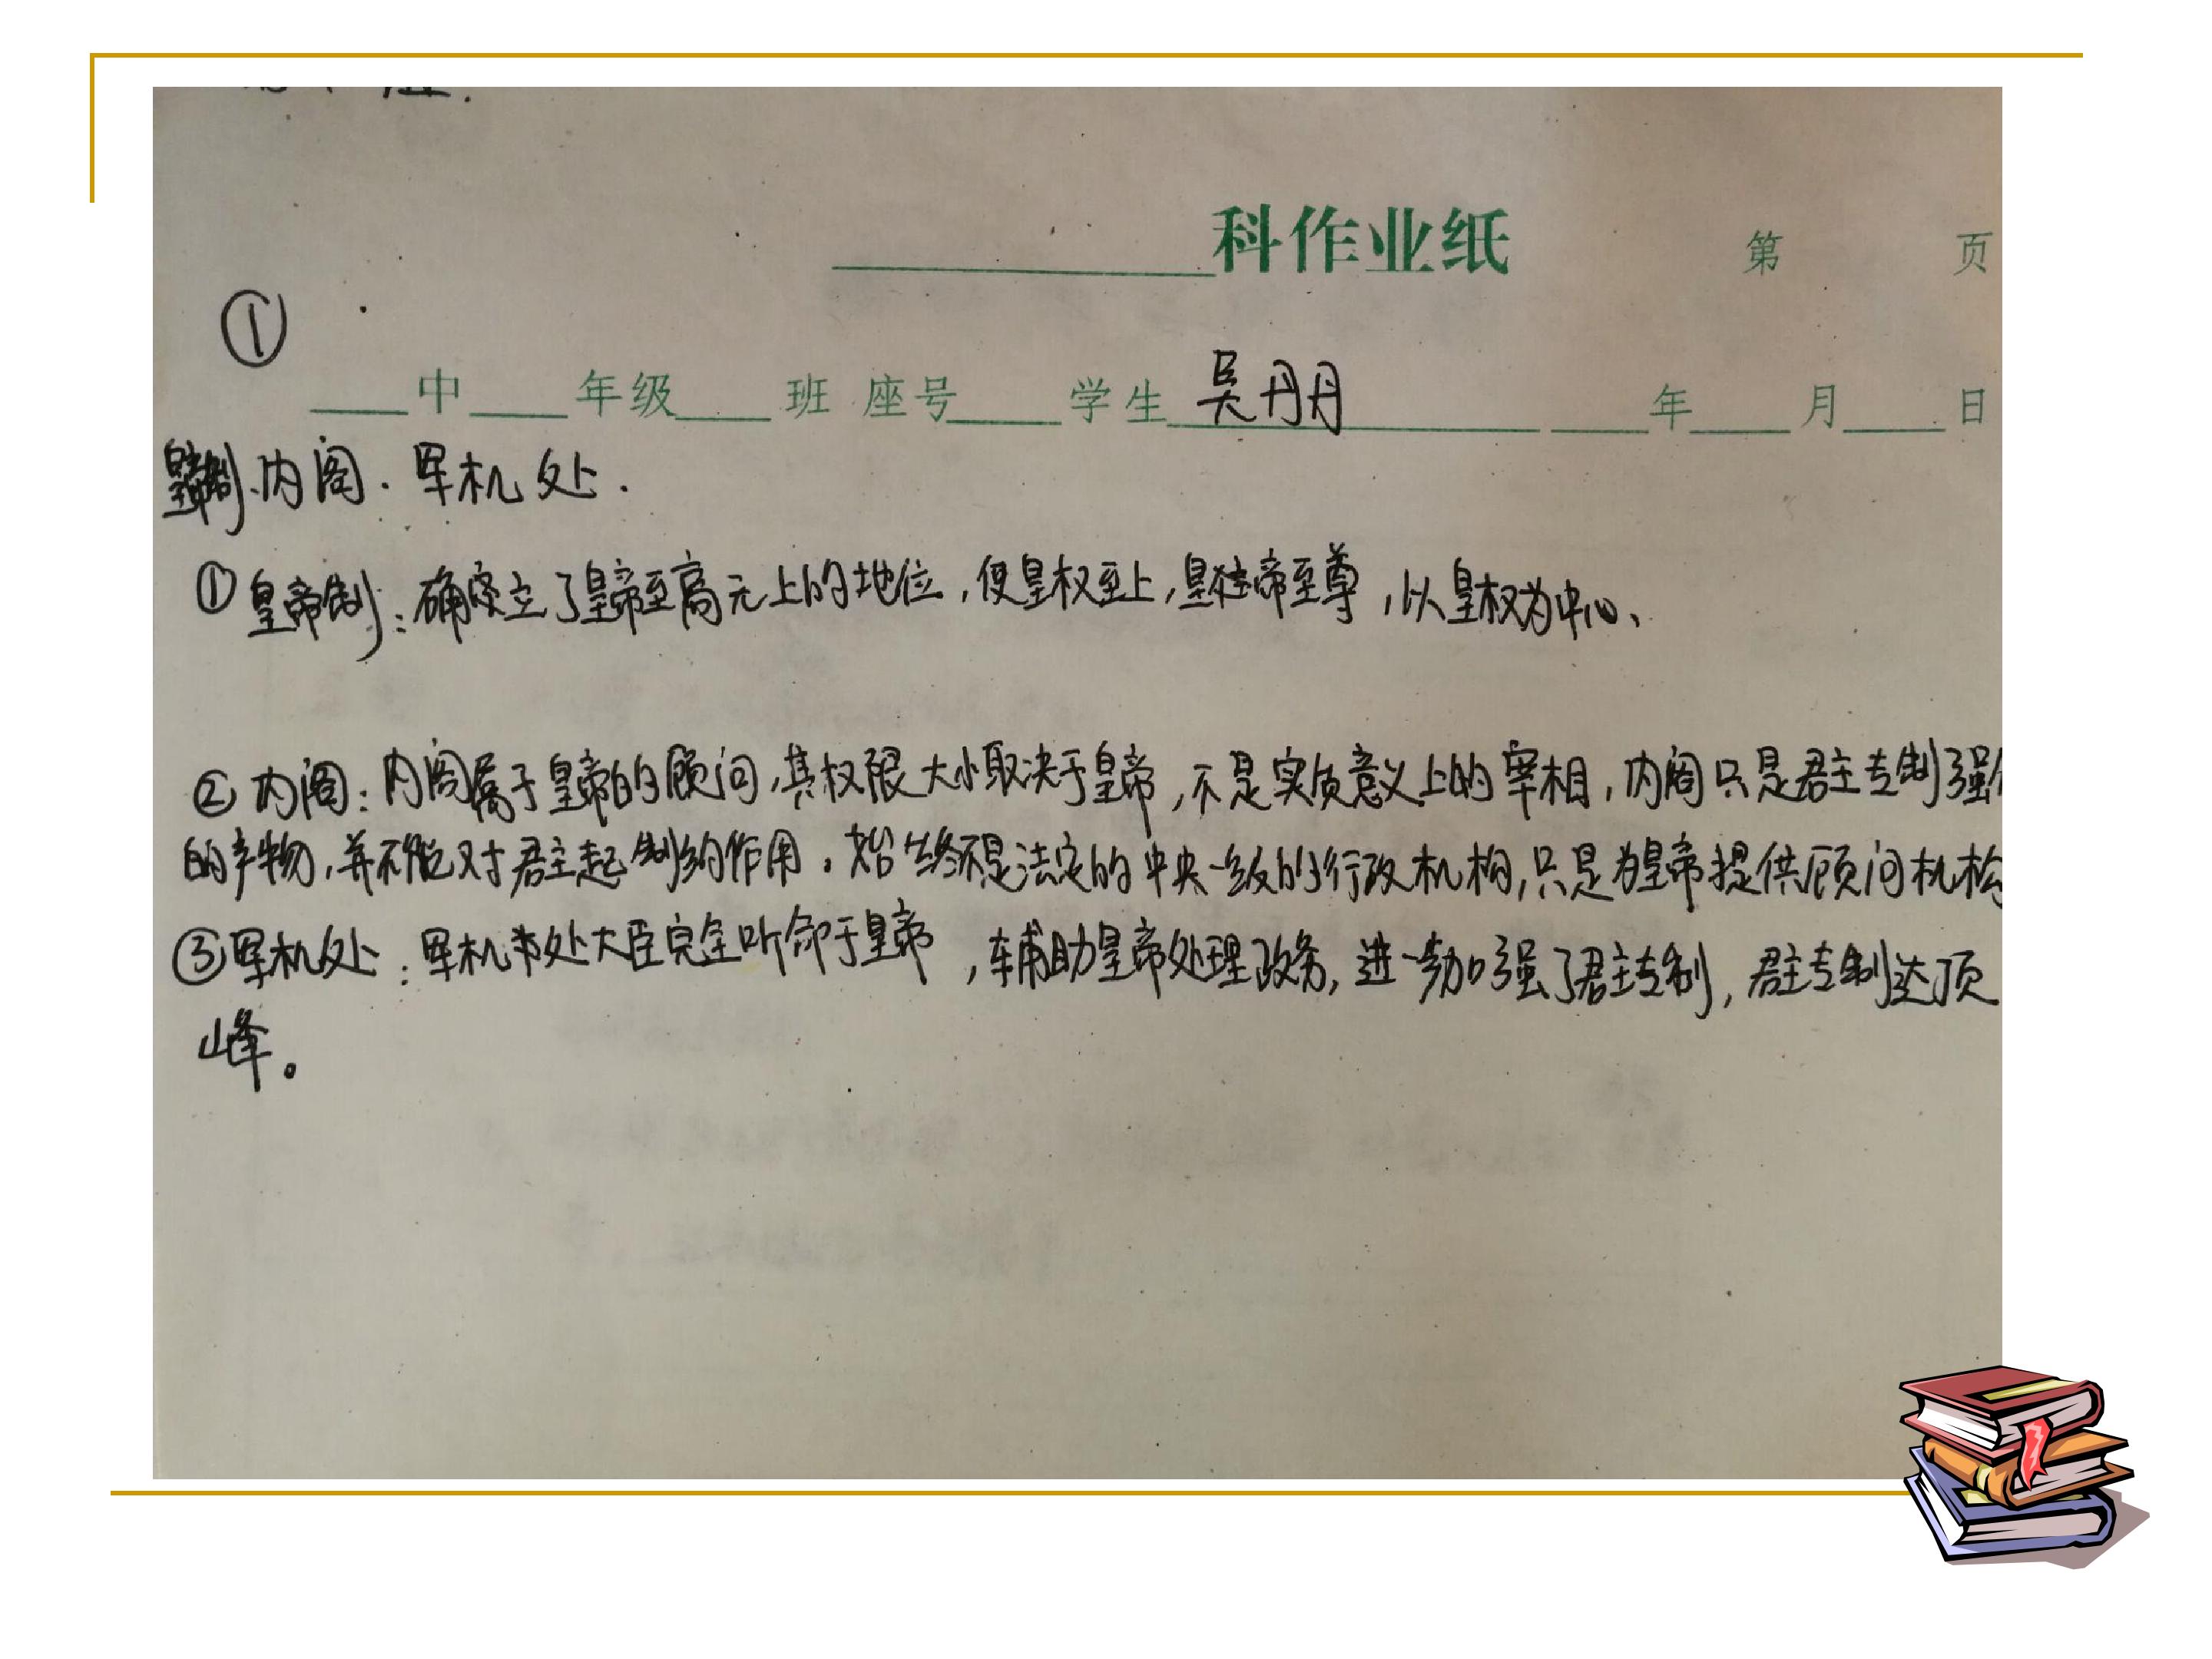 科作业纸 第 页
①
中 年级 班 座号 学生 吴丹丹 年 月 日
皇帝制、内阁.军机处.
①皇帝制:确立了皇帝至高无上的地位,使皇权至上,皇帝至尊,以皇权为中心、
②内阁:内阁属于皇帝的顾问,其权限大小取决于皇帝,不是实质意义上的宰相,内阁只是君主专制强
的产物,并不能对君主起制约作用.始终不是法定的中央一级的行政机构,只是为皇帝提供顾问机构
③军机处:军机处大臣完全听命于皇帝,辅助皇帝处理政务,进一步加强了君主专制,君主专制达顶
峰。